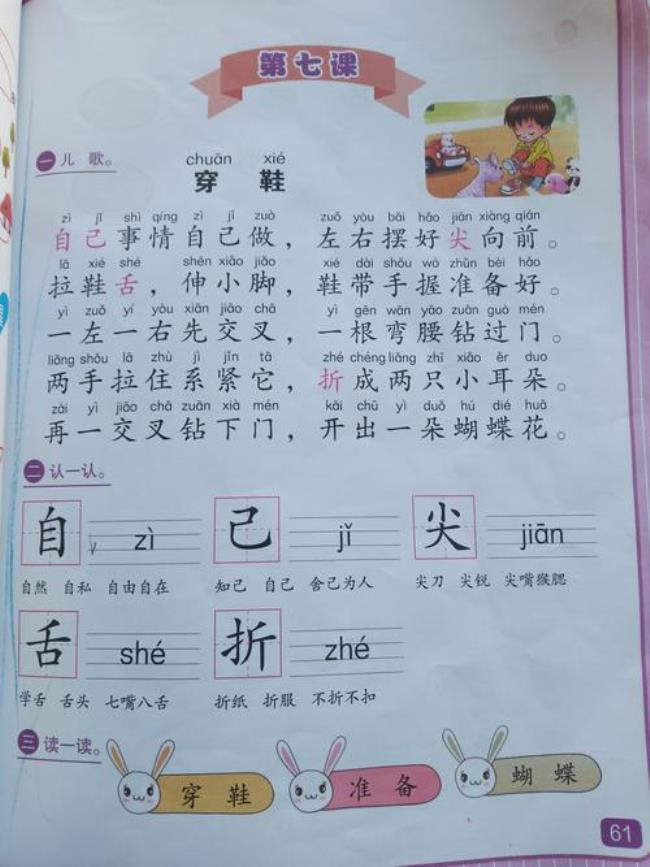 第七课
一 儿歌。
chuān xié
穿鞋
zì jǐ shì qíng zì jǐ zuò zuǒ yòu bǎi hǎo jiān xiàng qián
自己事情自己做，左右摆好尖向前。
lā xié shé shēn xiǎo jiǎo xié dài shǒu wò zhǔn bèi hǎo
拉鞋舌，伸小脚，鞋带手握准备好。
yì zuǒ yí yòu xiān jiāo chā yì gēn wān yāo zuān guò mén
一左一右先交叉，一根弯腰钻过门。
liǎng shǒu lā zhù jì jǐn tā zhé chéng liǎng zhī xiǎo ěr duo
两手拉住系紧它，折成两只小耳朵。
zài yì jiāo chā zuān xià mén kāi chū yì duǒ hú dié huā
再一交叉钻下门，开出一朵蝴蝶花。
二 认一认。
自 zì 己 jǐ 尖 jiān
自然 自私 自由自在 知己 自己 舍己为人 尖刀 尖锐 尖嘴猴腮
舌 shé 折 zhé
学舌 舌头 七嘴八舌 折纸 折服 不折不扣
三 读一读。
穿鞋 准备 蝴蝶
61